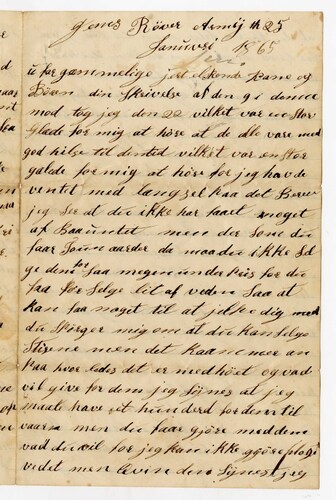 Jones Röver Armij th 25
Januvri 1865
uforgæmmelige jæt elskende Kane og
Börn din Skrivelse af den 9 i denna
mod tog jeg den 22 vilket var en stor
glade for mig at höre at de alle vare med
god hilse til den tid vilket var en stor
galde for mig at höre for jeg havde
ventit med længsel paa det Brev
jeg Ser at du ikke har faaet noget
af Baauntet men der som du
faar Som aarder da maa du ikke Sel
ge dem for Saa megin unda Preis for du
faa for Selge lit af veden Saa at
kan faa noget til at jelpe dig med
du Spörger mig om at du kan Selge
Stisene men det kaam mer an
paa hvor ledes det er med höet og vad
vil give for dem jeg Synes at jeg
maate have et hundred for dem til
vaarn men du faar gjöre med dem
vad du vil for jeg kan ikke gjöre
vedet men levin den Synes jeg